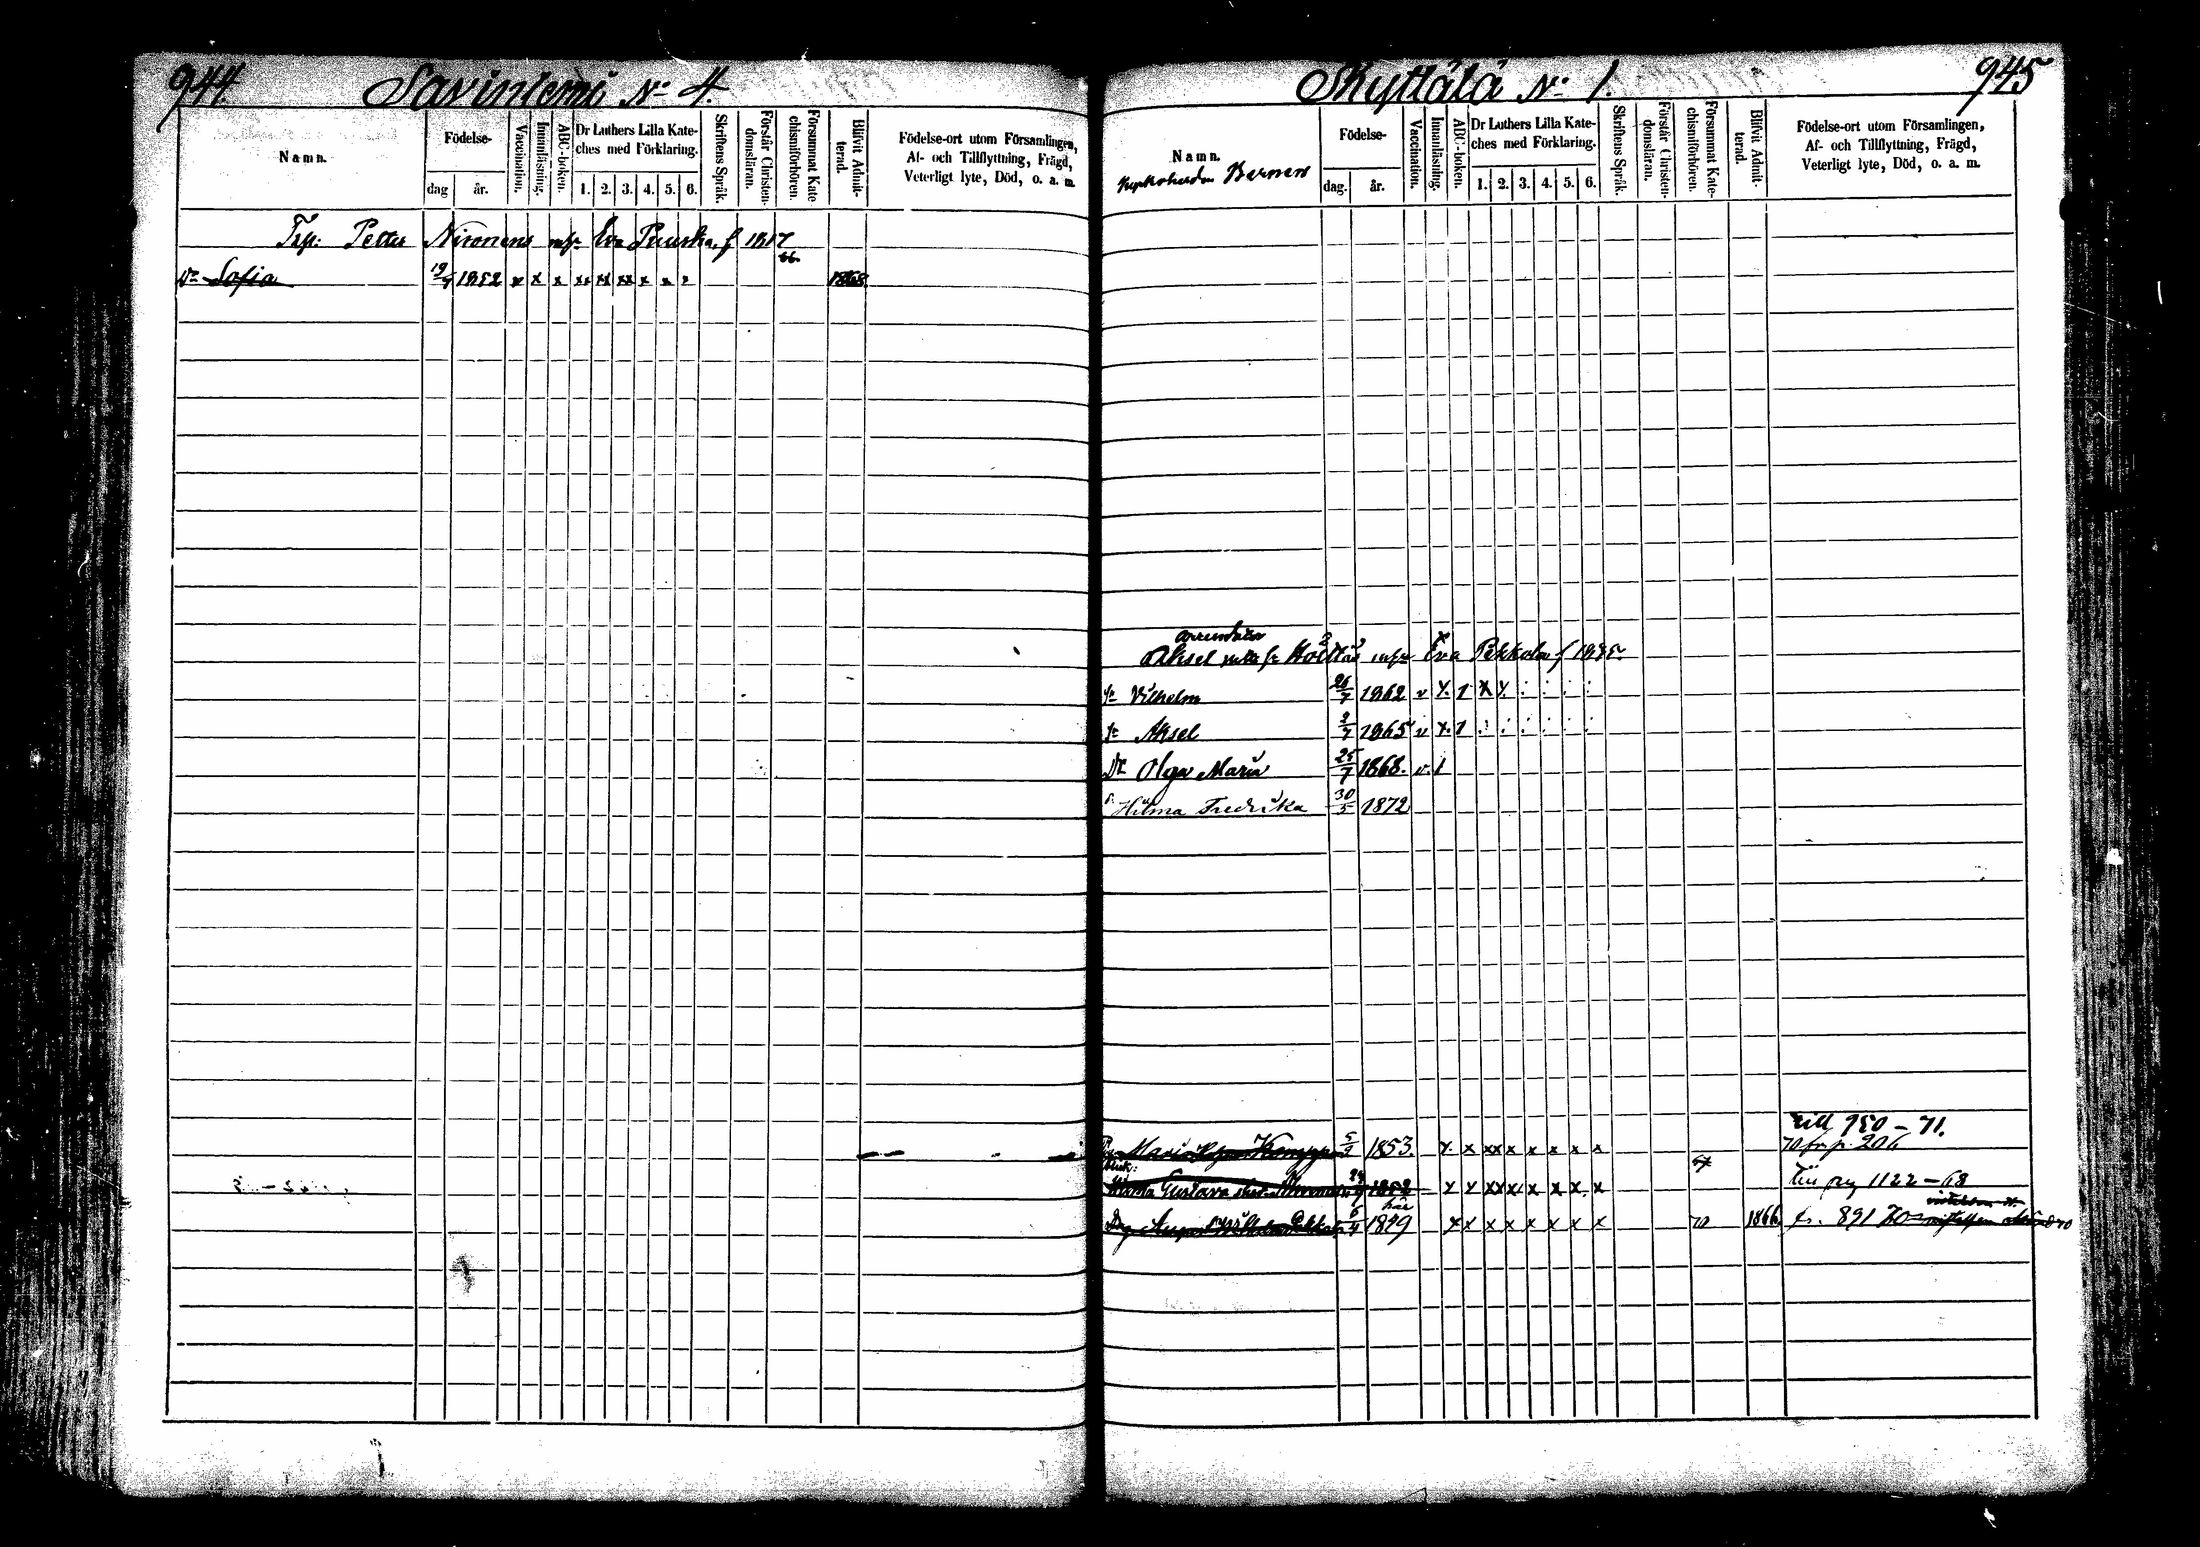 944. Saviniemi No 4.
Namn.
Födelse-
dag
år.
Vaccination.
Innanläsning.
ABC-boken.
Dr Luthers Lilla Kate-
ches med Förklaring.
1. 2. 3. 4. 5. 6.
Skriftens Språk.
Förstår Christen-
domsläran.
Försummat Kate
chismiförhören.
Blifvit Admit-
terad.
Födelse-ort utom Församlingen,
Af- och Tillflyttning, Frägd,
Veterligt lyte, Död, o. a. m.
Petter Nironens Eva f 1817
66.
Dr Sofia 19/4 1852 v x x xx xx xx x x x 1868
Skyttälä No 1. 945
Namn.
Barnen
Födelse-
dag.
år.
Vaccination.
Innanläsning.
ABC-boken.
Dr Luthers Lilla Kate-
ches med Förklaring.
1. 2. 3. 4. 5. 6.
Skriftens Språk.
Förstår Christen-
domsläran.
Försummat Kate-
chismiförhören.
Blifvit Admit-
terad.
Födelse-ort utom Församlingen,
Af- och Tillflyttning, Frägd,
Veterligt lyte, Död, o. a. m.
Aksel Eva Pekkola f 1835.
Sr Vilhelm 26/7 1862 v x 1 x x
Sr Aksel 2/7 1865 v x 1
Dr Olga Maria 25/7 1868. v. 1
Hilma Fredrika 30/5 1872
till 950 - 71.
Maria 5/3 1853. x x xx x x x x x 70 fr p. 206
Gustava 1852 x x xx x x x x x till pag 1122 - 68
August Wilhelm Pekkola 6/4 1849 x x x x x x x x 70 1866 fr. 891